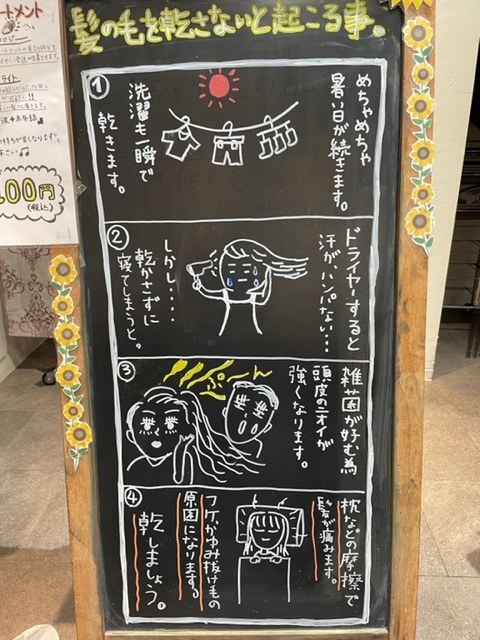 髪の毛を乾さないと起こる事。
①
めちゃめちゃ
暑い日が続きます。
洗濯も一瞬で
乾きます。
②
ドライヤーすると
汗が、ハンパない…
しかし....
乾かさずに
寝てしまうと。
③
雑菌が好む為
頭皮のニオイが
強くなります。
ぷ〜ん
④
枕などの摩擦で
髪が痛みます。
フケ、かゆみ抜け毛の
原因になります。
乾しましょう。
トメント
ライト
00円
(税込)